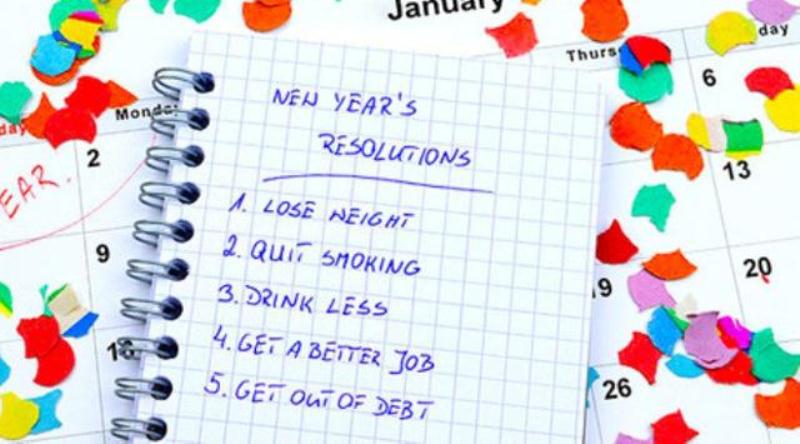 January
Thurs
day
6
day
Monda
2
EAR.
13
9
20
19
16
26
NEW YEAR'S
RESOLUTIONS
1. LOSE WEIGHT
2. QUIT SMOKING
3. DRINK LESS
4. GET A BETTER JOB
5. GET OUT OF DEBT